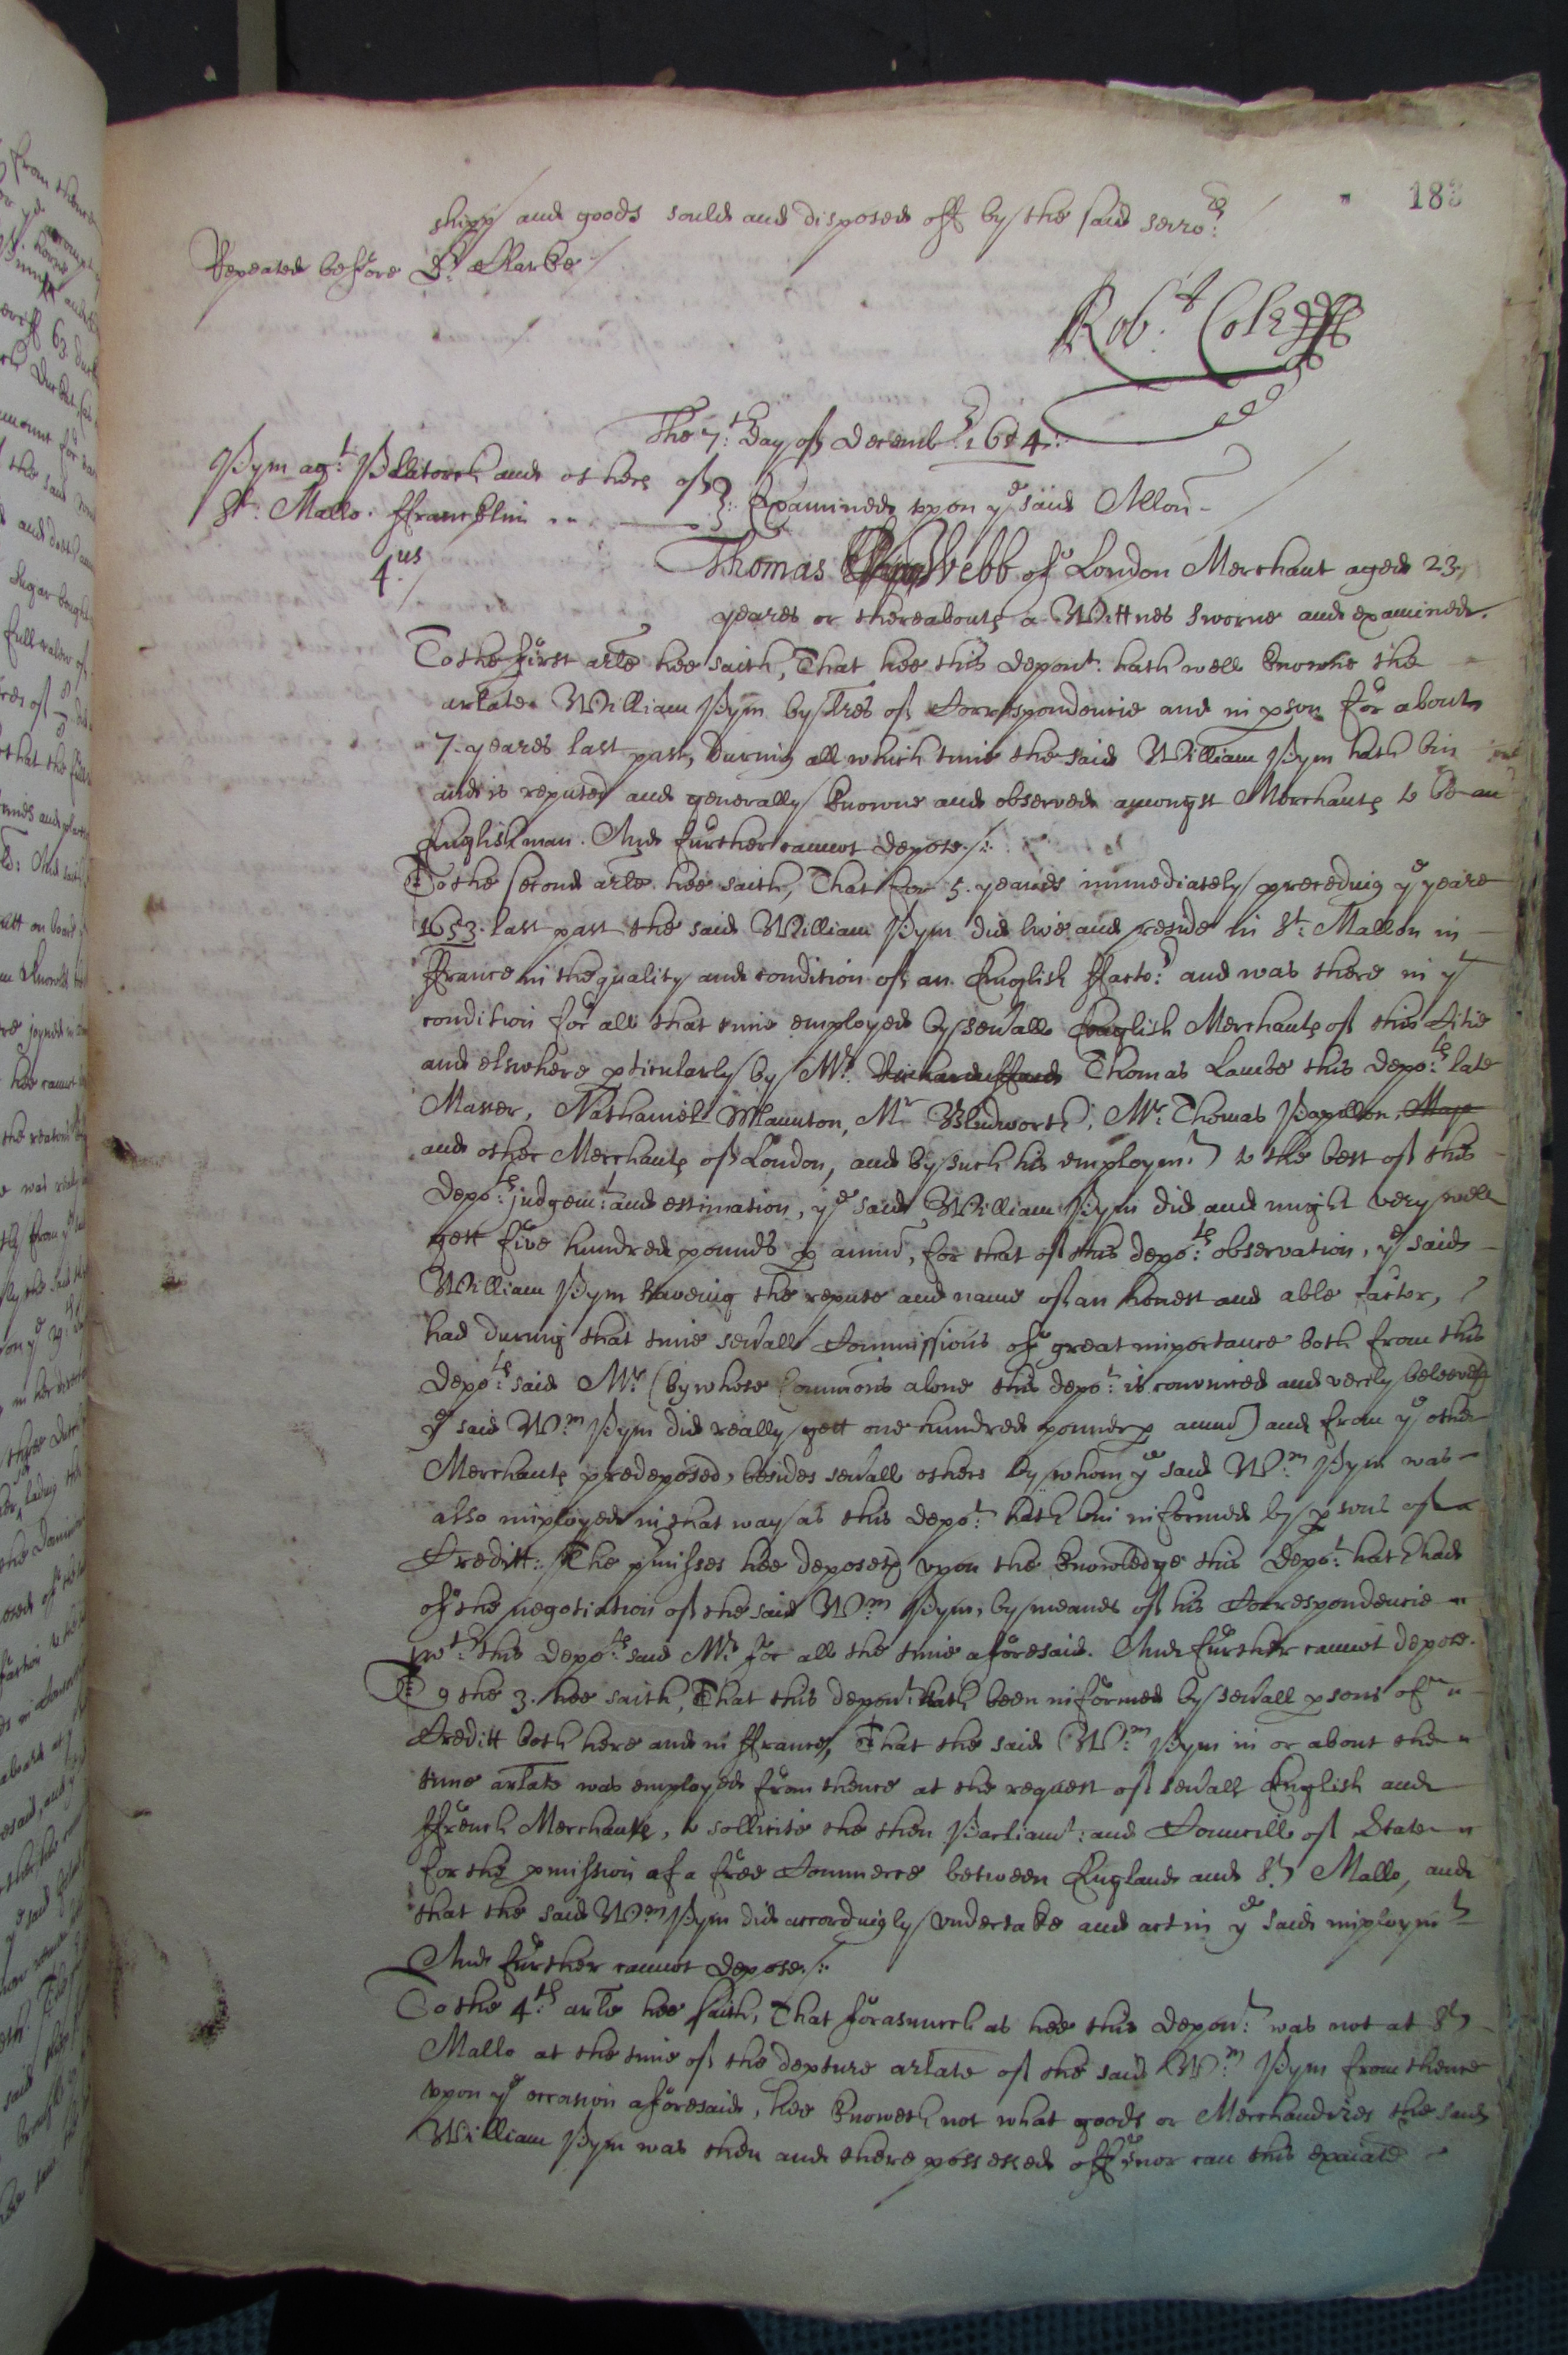 183
shipp and goods sould and disposed off by the said
Repeated before Dr. Clarke
Rob.t Cole
The 7.th Day of Decemb.r 1654.:
Pym ag.t and others of
St. Mallo. ffrancklin .. } Examined upon ye said Allon
4.us
Thomas Webb of London Merchant aged 23.
yeares or thereabouts a Wittnes sworne and examined.
To the first arle hee saith, That hee this depont. hath well knowne the
arlate William Pym by lres of Correspondencie and in pson for about
7. yeares last past, During all which time the said William Pym hath bin
and is reputed and generally knowne and observed amongst Merchants to be an
Englishman. And further cannot depose./:
To the second arle. hee saith, That for 5. yeares immediately preceding ye yeare
1653. last past the said William Pym did live and reside in St. Mallon in
ffrance in the quality and condition of an English ffacto:r and was there in yt
condition for all that time employed by sevall English Merchants of this Citie
and elswhere pticularly by Mr. Thomas Lambe this depo:ts late
Master, Nathaniel Maunton, Mr Bludworth, Mr. Thomas Papillon,
and other Merchants of London, and by such his employm.t to the best of this
depo:ts judgem:t and estimation, ye said William Pym did and might very well
gett five hundred pounds p annu, for that of this depo:ts observation, ye said
William Pym haveing the repute and name of an honest and able factor,
had during that time sevall Commissions of great importance both from this
depo:ts said Mr (by whose Commions alone this depo:t is convinced and verily beleeveth
ye said Wm. Pym did really gett one hundred pounds p annu) and from ye other
Merchants predeposed, besides sevall others by whom ye said Wm. Pym was
also imployed in that way as this depo:t hath bin informed by psons of
Creditt: The pmisses hee deposeth upon the knowledge this Depo:t hath had
of the negotiation of the said Wm. Pym, by meanes of his Correspondencie
wth. this depo:ts said Mr. for all the time aforesaid. And further cannot depose.
To the 3. hee saith, That this depont. hath been informed by sevall psons of
Creditt both here and in ffrance, That the said Wm. Pym in or about the
time arlate was employed from thence at the request of sevall English and
ffrench Merchants, to sollicite the then Parliamt: and Councill of State
for the pmission of a free Commerce between England and St. Mallo, and
that the said Wm. Pym did accordingly undertake and act in ye said imploymt.
And further cannot depose./:
To the 4.th arle hee saith, That forasmuch as hee this depon:t was not at St.
Mallo at the time of the depture arlate of the said Wm. Pym from thence
upon ye occasion aforesaid, hee knoweth not what goods or Merchandizes the said
William Pym was then and there possessed off, nor can this exaiate